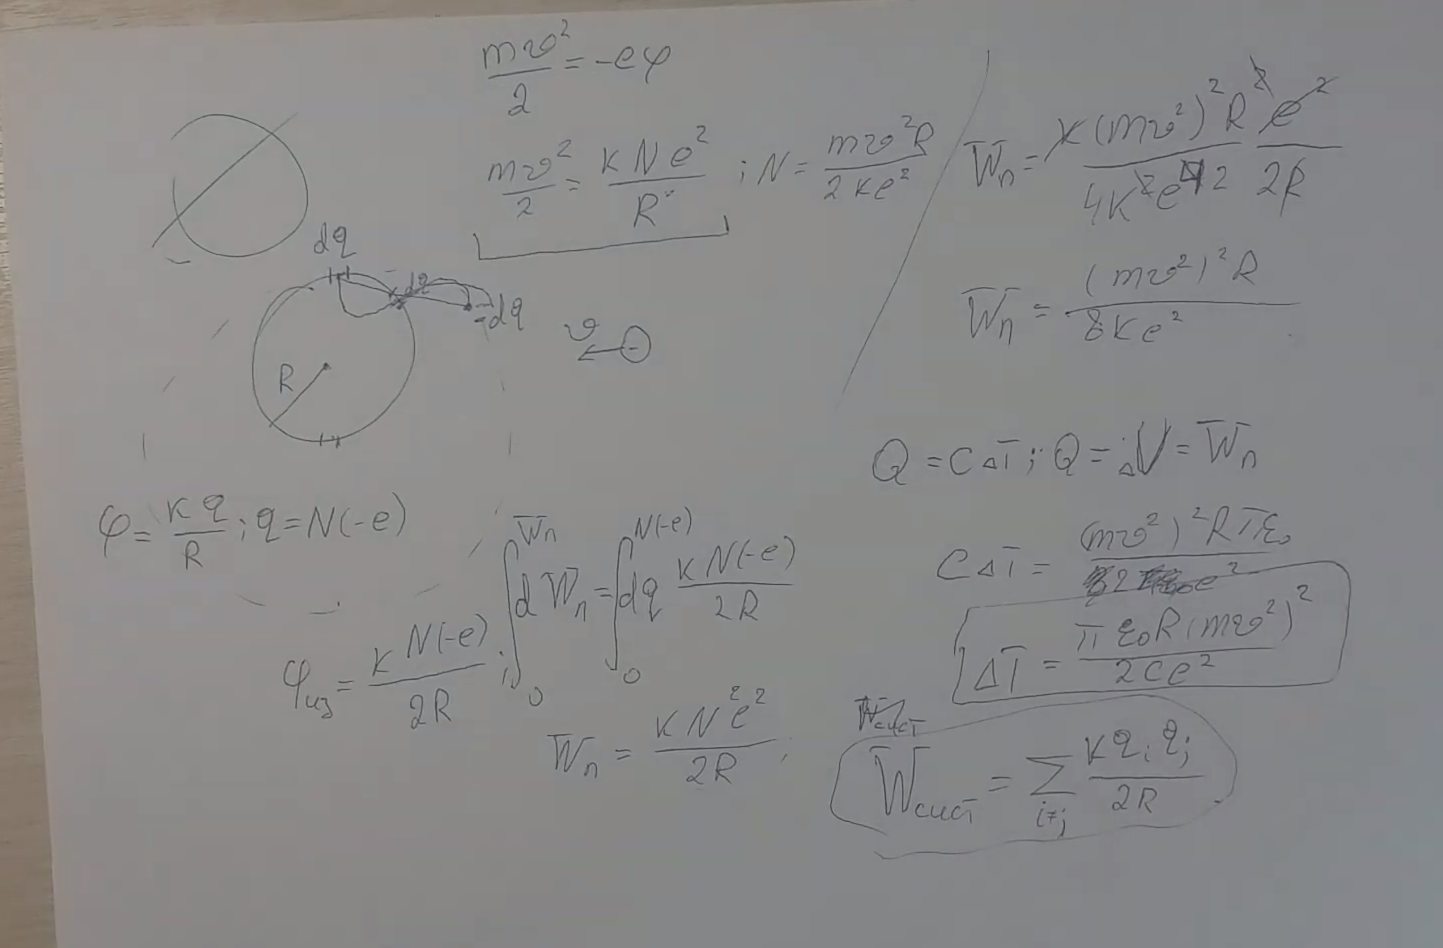 mv²/2 = -eφ
mv²/2 = kNe²/R ; N = mv²R/2ke²
dq
dq
-dq
v
-
R
φ = kq/R ; q = N(-e)
φиз = k N(-e)/2R ; ∫₀^Wп dWп = ∫₀^N(-e) dq kN(-e)/2R
Wп = kN²e²/2R ;
Wп = k(mv²)²R² e²/4k²e⁴2 2R
Wп = (mv²)²R/8ke²
Q = CΔT ; Q = ΔU = Wп
CΔT = (mv²)²Rπε₀/2e²
ΔT = πε₀R(mv²)²/2Ce²
Wсист = Σ i≠j kqᵢqⱼ/2R